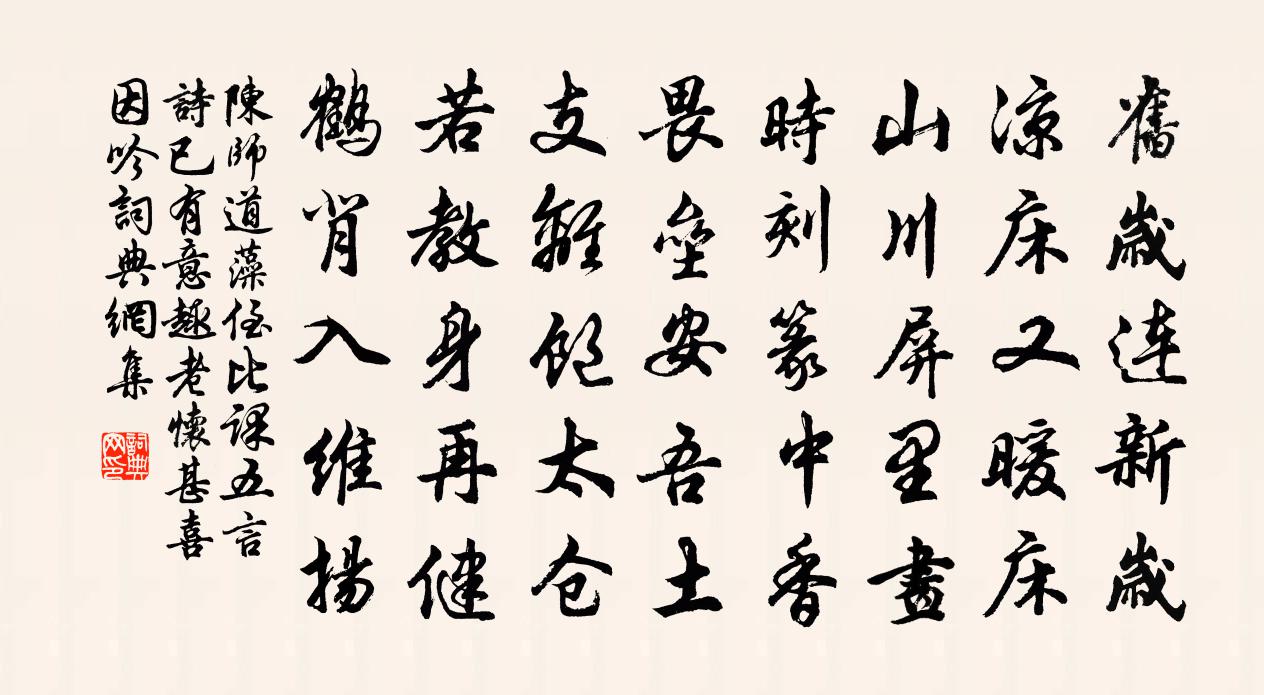 舊歲连新歲
凉床又暖床
山川屏里畫
時刻篆中香
畏壘安吾土
支離飽太仓
若教身再健
鶴背入维揚
陳師道藻侄比課五言
詩已有意趣老懷甚喜
因吟詞典網集
詞典网印